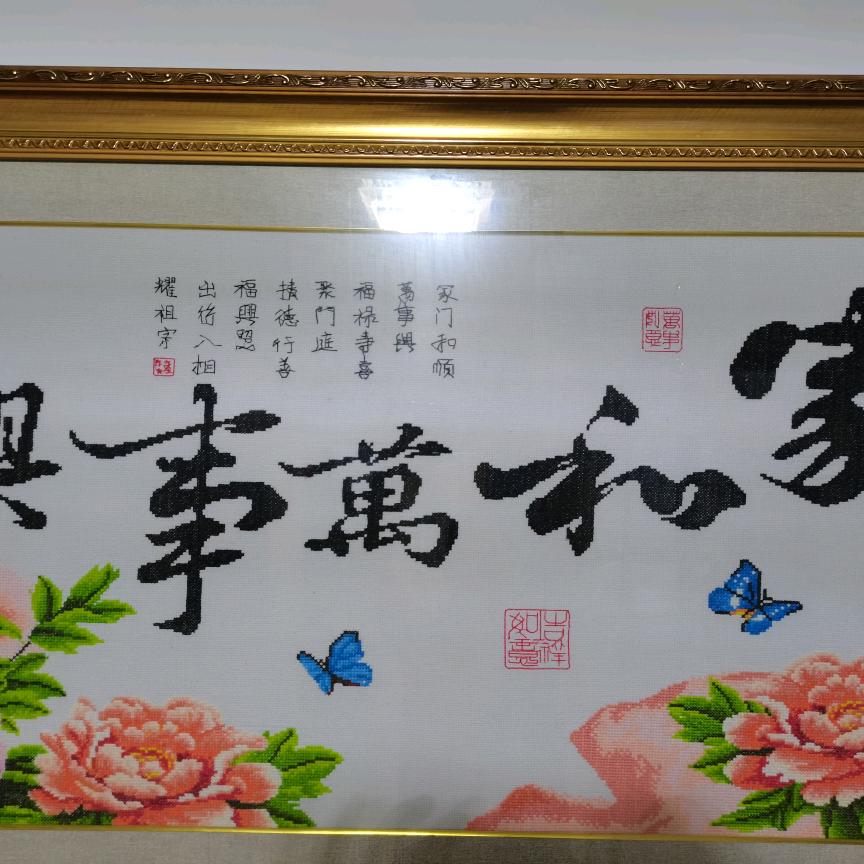 家和萬事興
家门和顺
萬事興
福禄寿喜
聚門庭
積德行善
福興照
出行入相
耀祖宗
吉祥如意